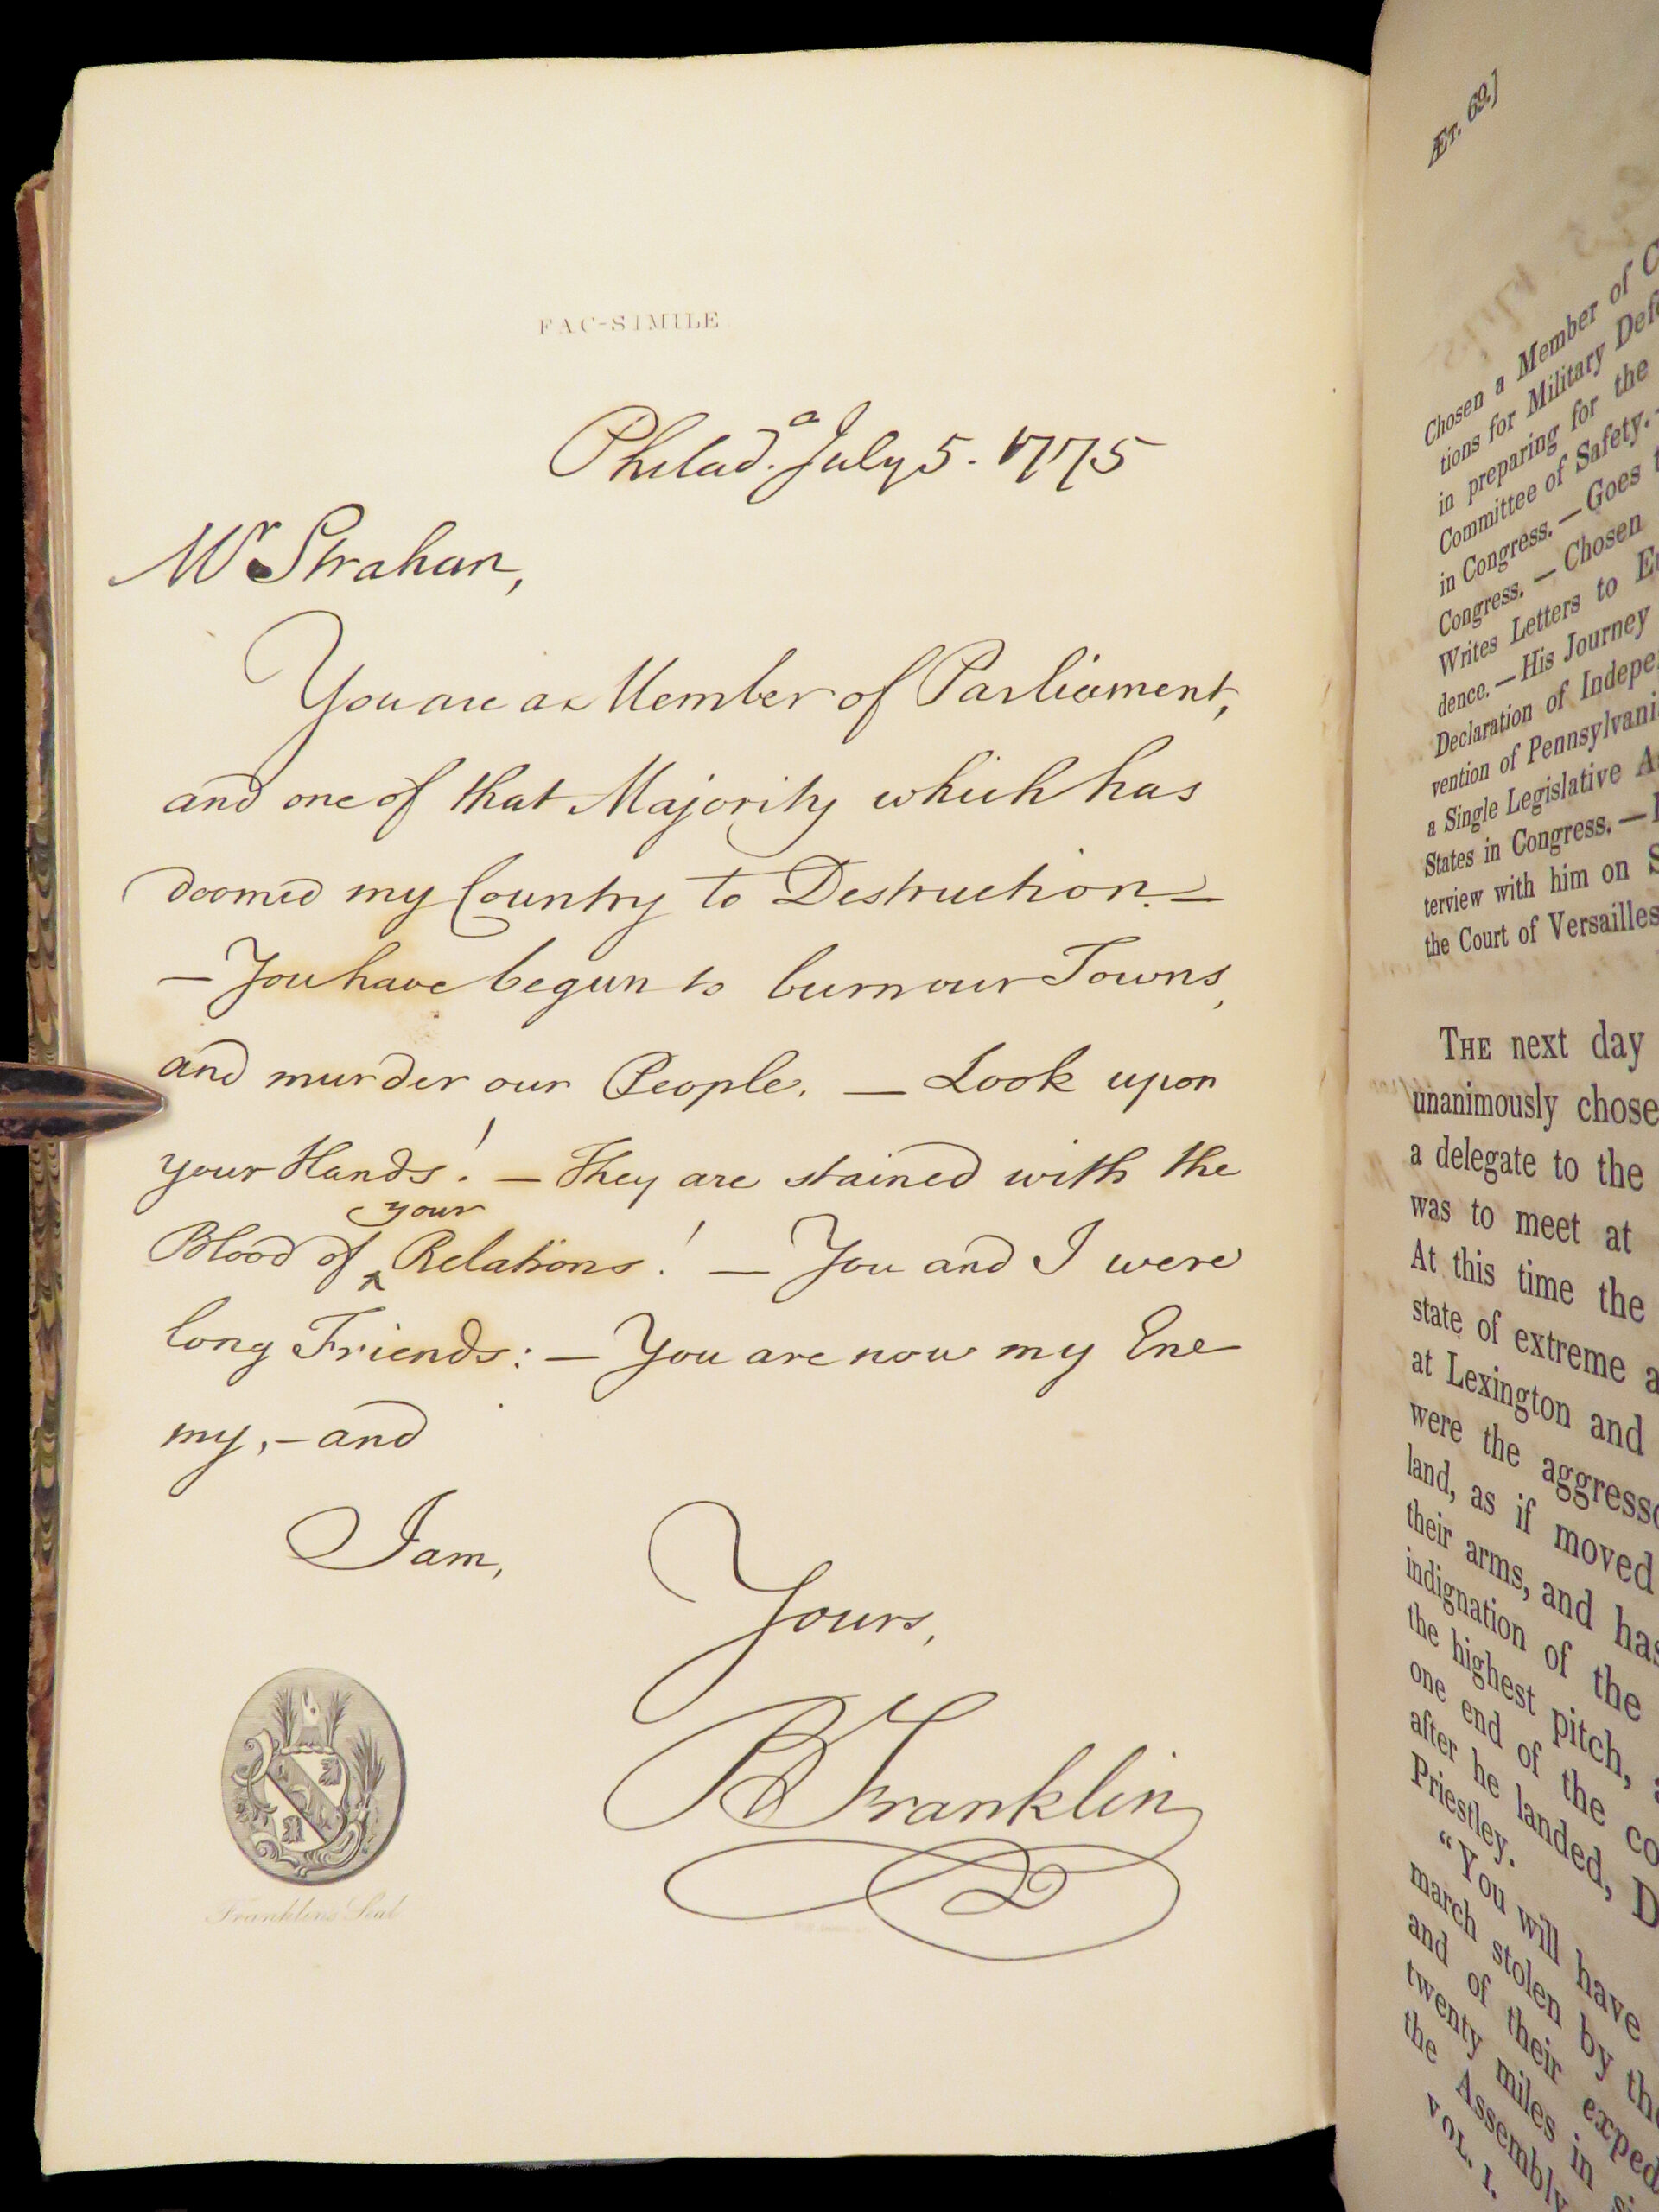 FAC-SIMILE
Philad.ᵃ July 5. 1775
Mʳ Strahan,
You are a Member of Parliament,
and one of that Majority which has
doomed my Country to Destruction. —
— You have begun to burn our Towns,
and murder our People. — Look upon
your Hands! — They are stained with the
your
Blood of ‸ Relations! — You and I were
long Friends: — You are now my Ene
my, — and
I am,
Yours,
B Franklin
Franklin's Seal
Æt. 69.]
Chosen a Member of
tions for Military
in preparing for the
Committee of Safety. —
in Congress. — Goes
Congress. — Chosen
Writes Letters to
dence. — His Journey
Declaration of
vention of
a Single Legislative
States in Congress. —
terview with him on
the Court of Versailles
THE next day
unanimously chose
a delegate to the
was to meet at
At this time the
state of extreme
at Lexington and
were the
land, as if moved
their arms, and
indignation of the
the highest pitch,
one end of the
after he landed,
Priestley.
“You will have
march stolen by
and of their
twenty miles in
the Assembly
VOL. I.